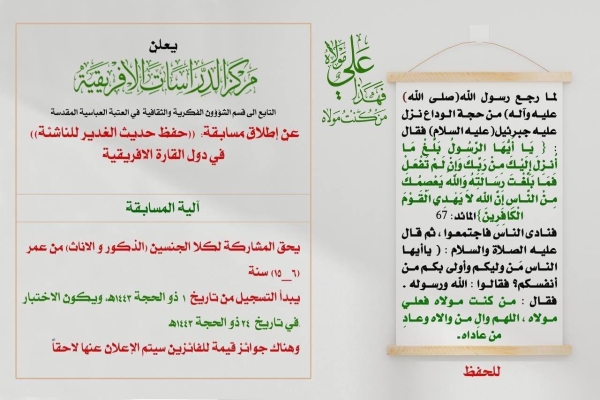 لما رجع رسول الله(صلى الله
عليه وآله) من حجة الوداع نزل
عليه جبرئيل(عليه السلام) فقال
: { يَا أَيُّهَا الرَّسُولُ بَلِّغْ مَا
أُنزِلَ إِلَيْكَ مِن رَّبِّكَ وَإِن لَّمْ تَفْعَلْ
فَمَا بَلَّغْتَ رِسَالَتَهُ وَاللَّهُ يَعْصِمُكَ
مِنَ النَّاسِ إِنَّ اللَّهَ لاَ يَهْدِي الْقَوْمَ
الْكَافِرِينَ}المائد: 67
فنادى الناس فاجتمعوا ، ثم قال
عليه الصلاة والسلام : (ياأيها
الناس مَن وليكم وأولى بكم من
أنفسكم؟ فقالوا : الله ورسوله .
فقال : من كنت مولاه فعلي
مولاه ، اللهم والِ من والاه وعادِ
من عاداه.
للحفظ
مَن كنت مولاه
فهذا
علي
مولاه
يعلن
مركز الدراسات الافريقية
التابع الى قسم الشؤوون الفكرية والثقافية في العتبة العباسية المقدسة
عن إطلاق مسابقة: ((حفظ حديث الغدير للناشئة))
في دول القارة الافريقية
آلية المسابقة
يحق المشاركة لكلا الجنسين (الذكور و الاناث) من عمر
(٦__١٥) سنة
يبدأ التسجيل من تاريخ ١ ذو الحجة ١٤٤٣هـ ويكون الاختبار
في تاريخ ٢٤ ذو الحجة ١٤٤٣هـ
وهناك جوائز قيمة للفائزين سيتم الإعلان عنها لاحقاً